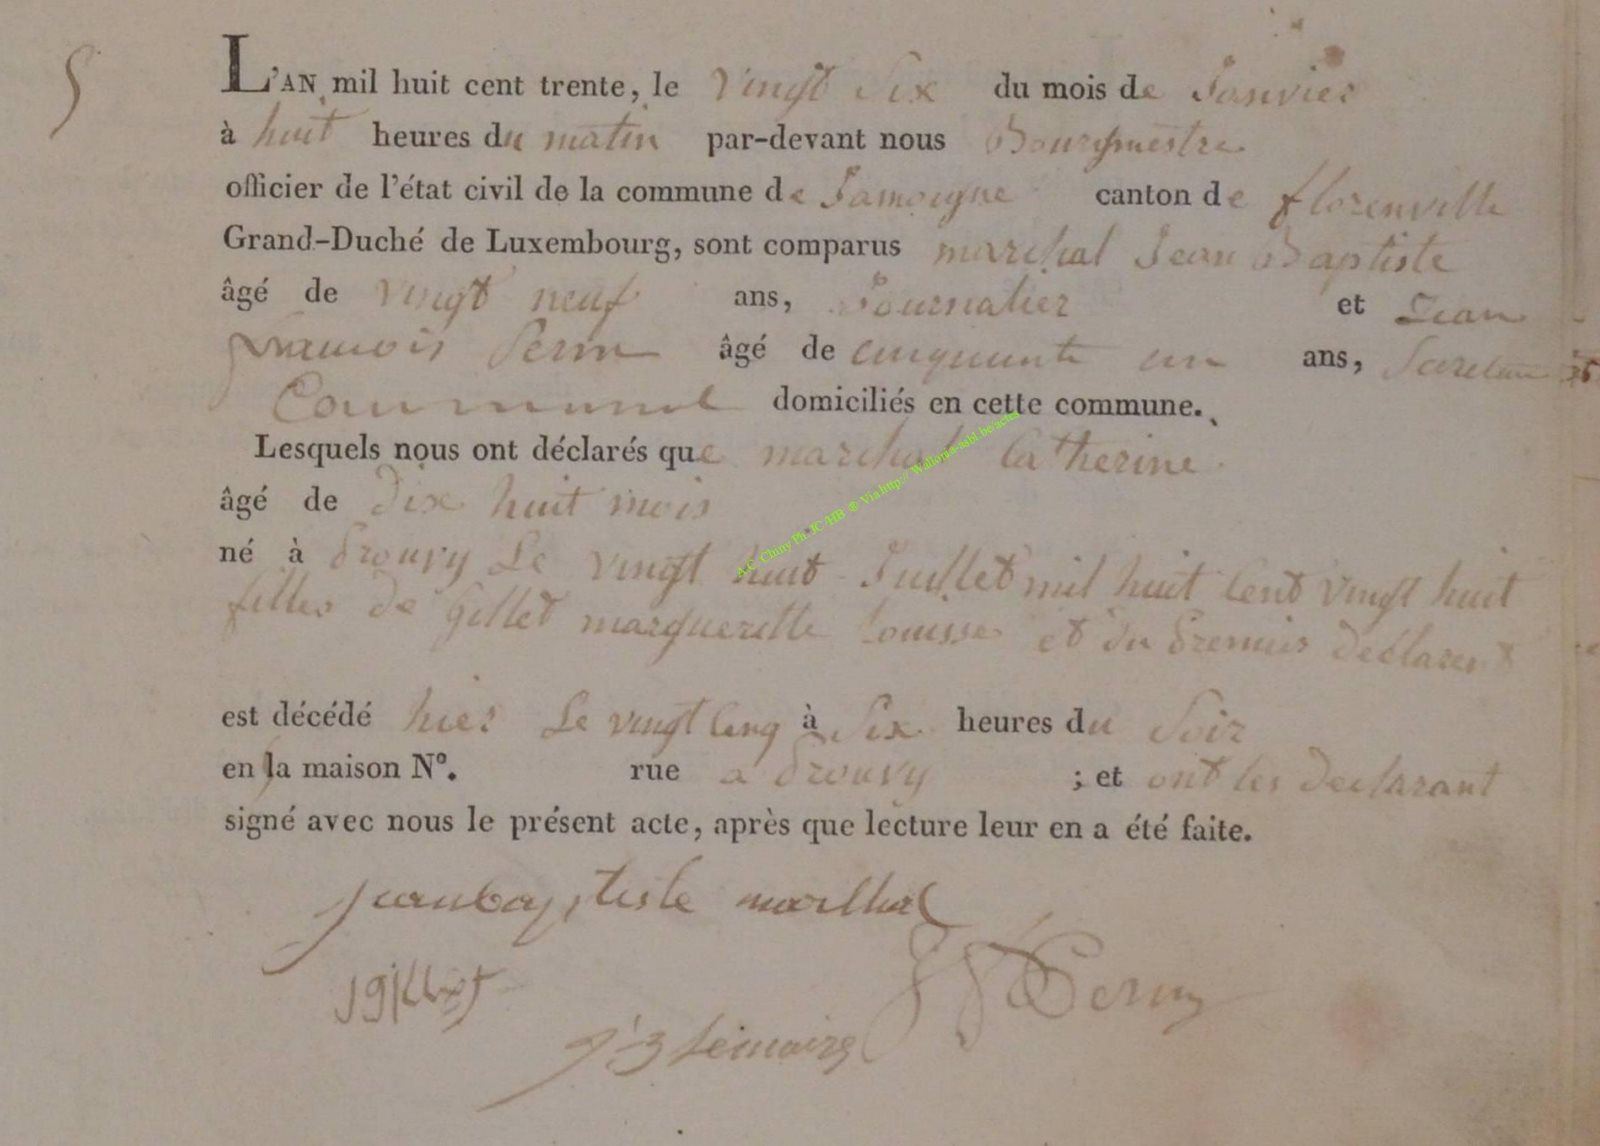 5
L'AN mil huit cent trente, le vingt Six du mois de Janvier
à huit heures du matin par-devant nous Bourgmestre
officier de l'état civil de la commune de Jamoigne canton de florenville
Grand-Duché de Luxembourg, sont comparus marchal Jean Baptiste
âgé de vingt neuf ans, Journalier et Jean
francois Perin âgé de cinquante un ans,
Communal domiciliés en cette commune.
Lesquels nous ont déclarés que marchal Catherine
âgé de dix huit mois
né à Prouvy Le vingt huit Juillet mil huit Cent vingt huit
filles de Gillet margueritte Louisse et du Premier declarent
est décédé hier Le vingt Cinq à Six heures du Soir
en la maison N°. rue a Prouvy ; et ont les declarant
signé avec nous le présent acte, après que lecture leur en a été faite.
jeanbaptiste marchal
J F Perin
Lemaire
A.C. Chiny Ph. JC-HB ® Via http:// Wallonia-asbl.be/actes